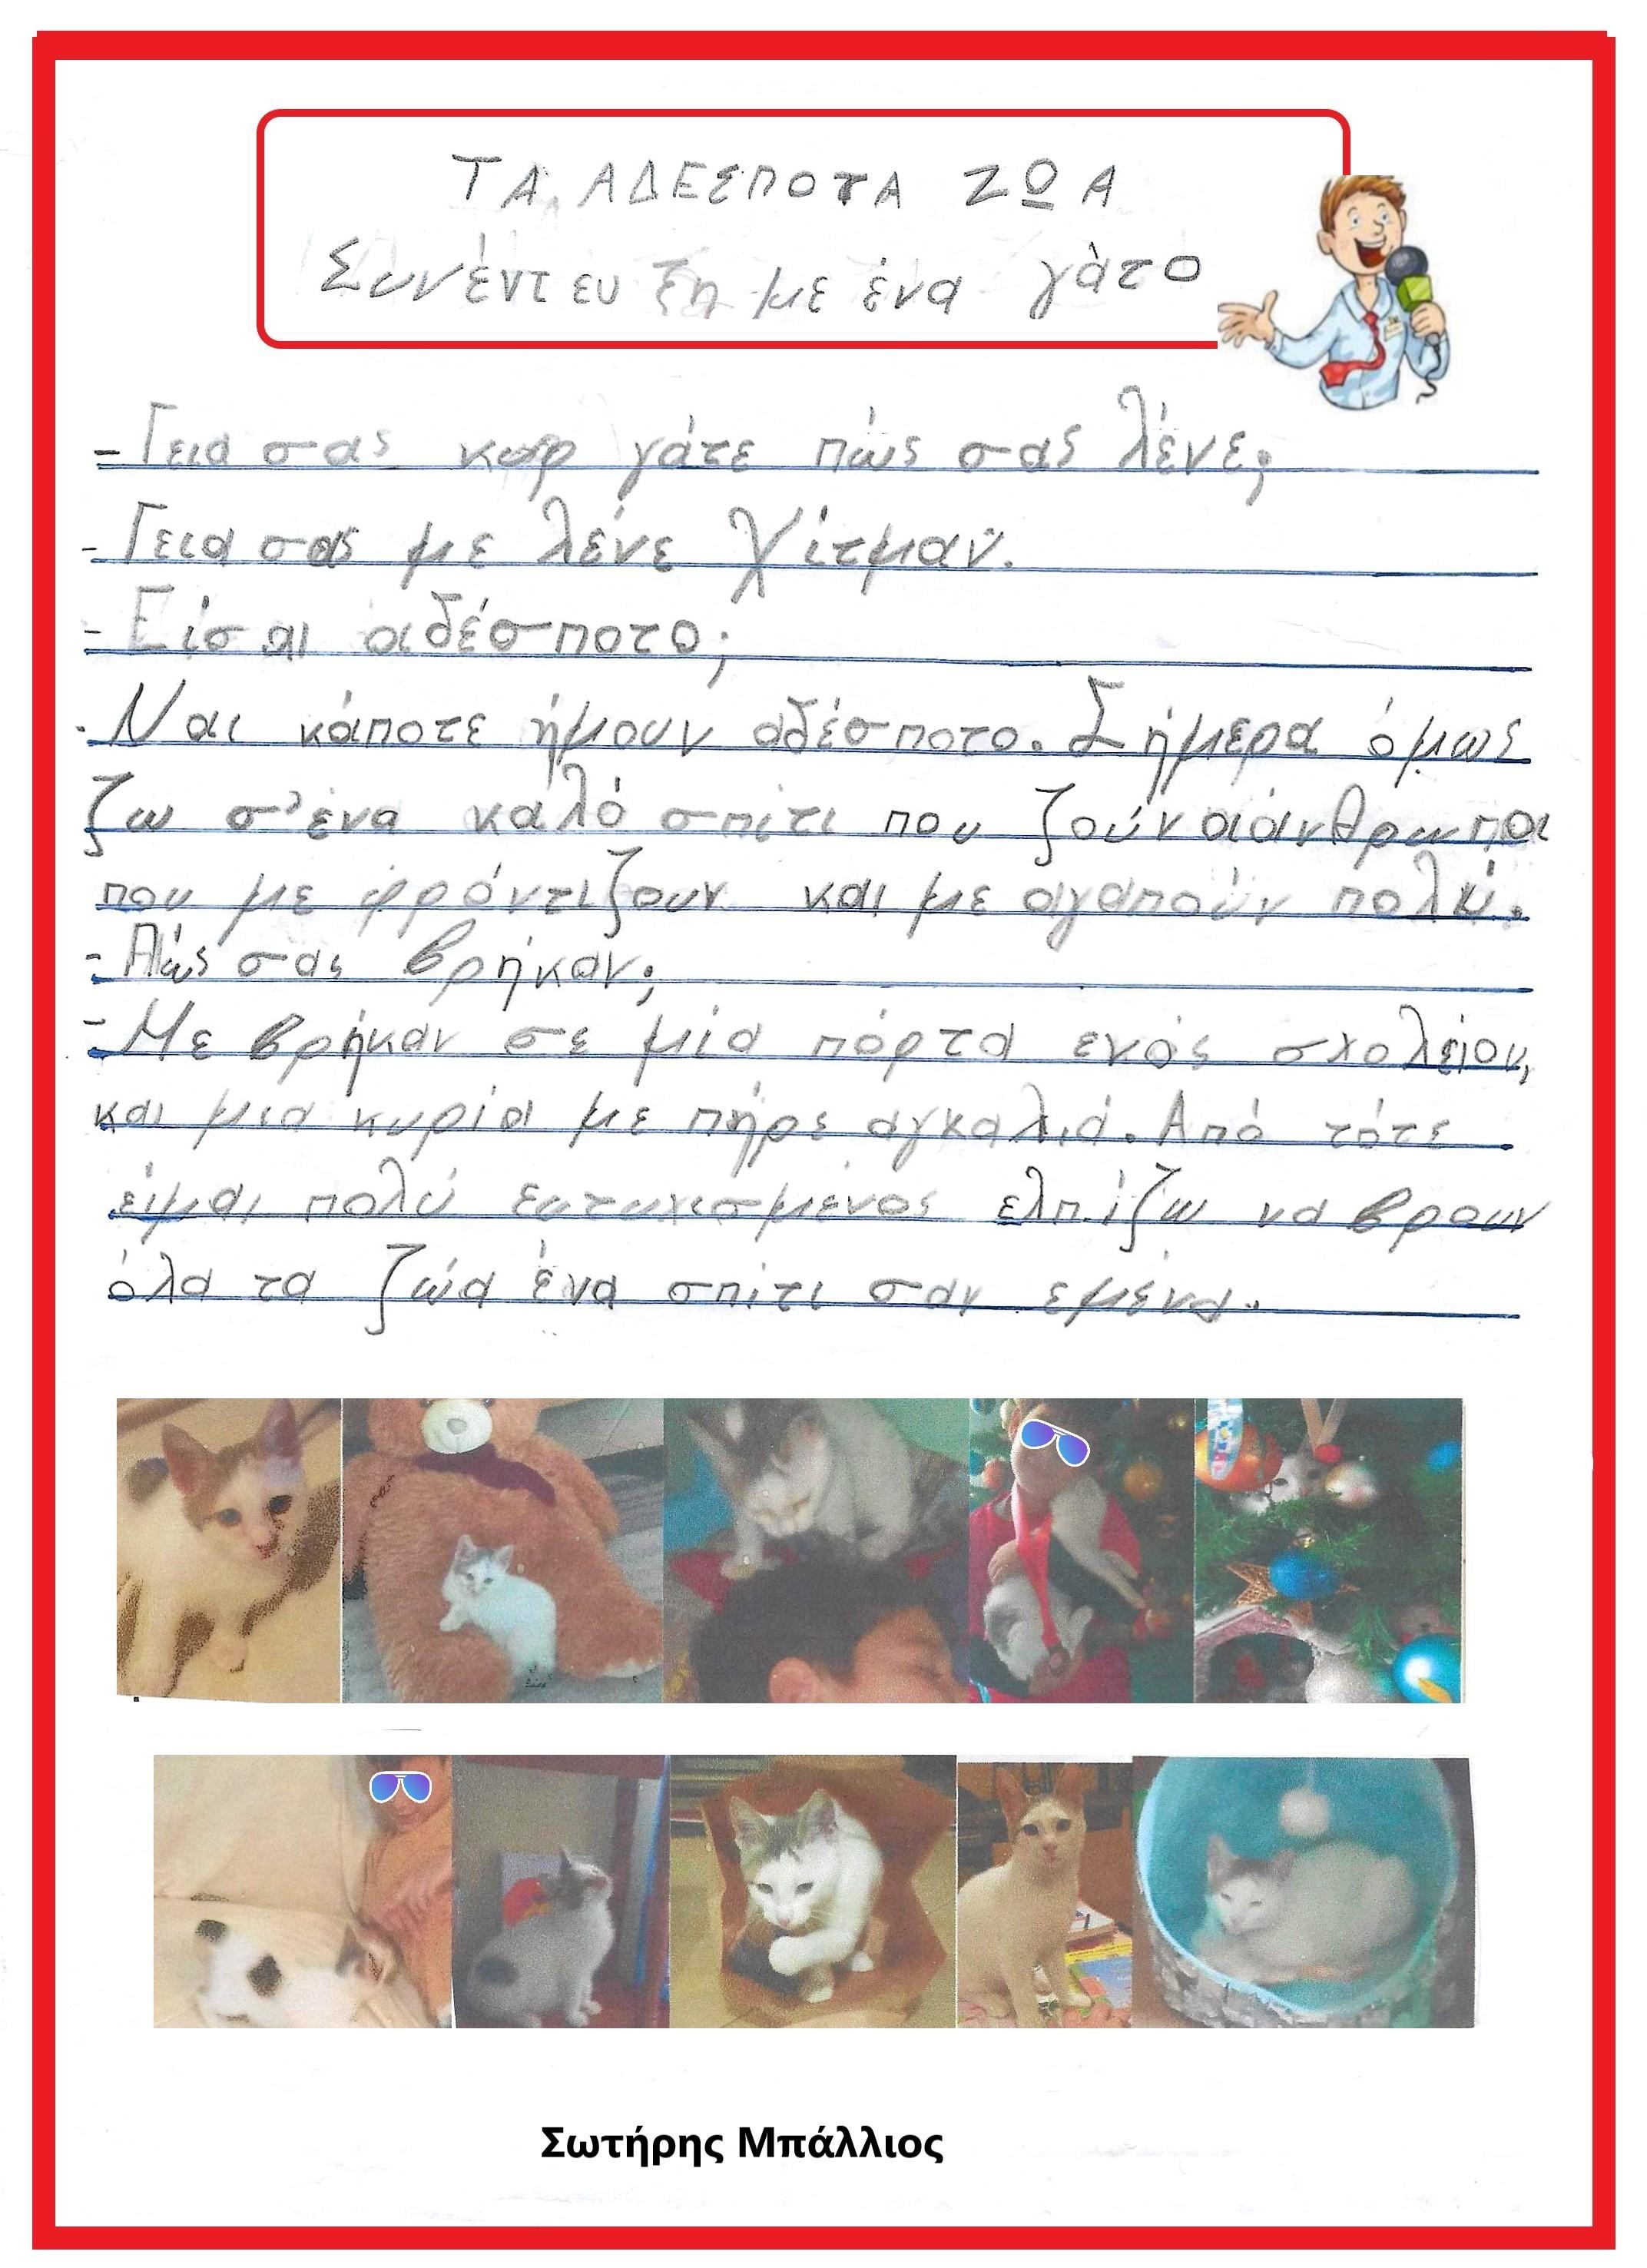 ΤΑ ΑΔΕΣΠΟΤΑ ΖΩΑ
Συνέντευξη με ένα γάτο
- Γεια σας κυρ γάτε πώς σας λένε;
- Γεια σας με λένε Χίτμαν.
- Είσαι αδέσποτο;
- Ναι κάποτε ήμουν αδέσποτο. Σήμερα όμως
ζω σ'ένα καλό σπίτι που ζούν οι άνθρωποι
που με φρόντιζουν και με αγαπούν πολύ.
- Πώς σας βρήκαν;
- Με βρήκαν σε μία πόρτα ενός σχολείου,
και μια κυρία με πήρε αγκαλιά. Από τότε
είμαι πολύ ευτυχισμένος ελπίζω να βρουν
όλα τα ζώα ένα σπίτι σαν εμένα.
Σωτήρης Μπάλλιος